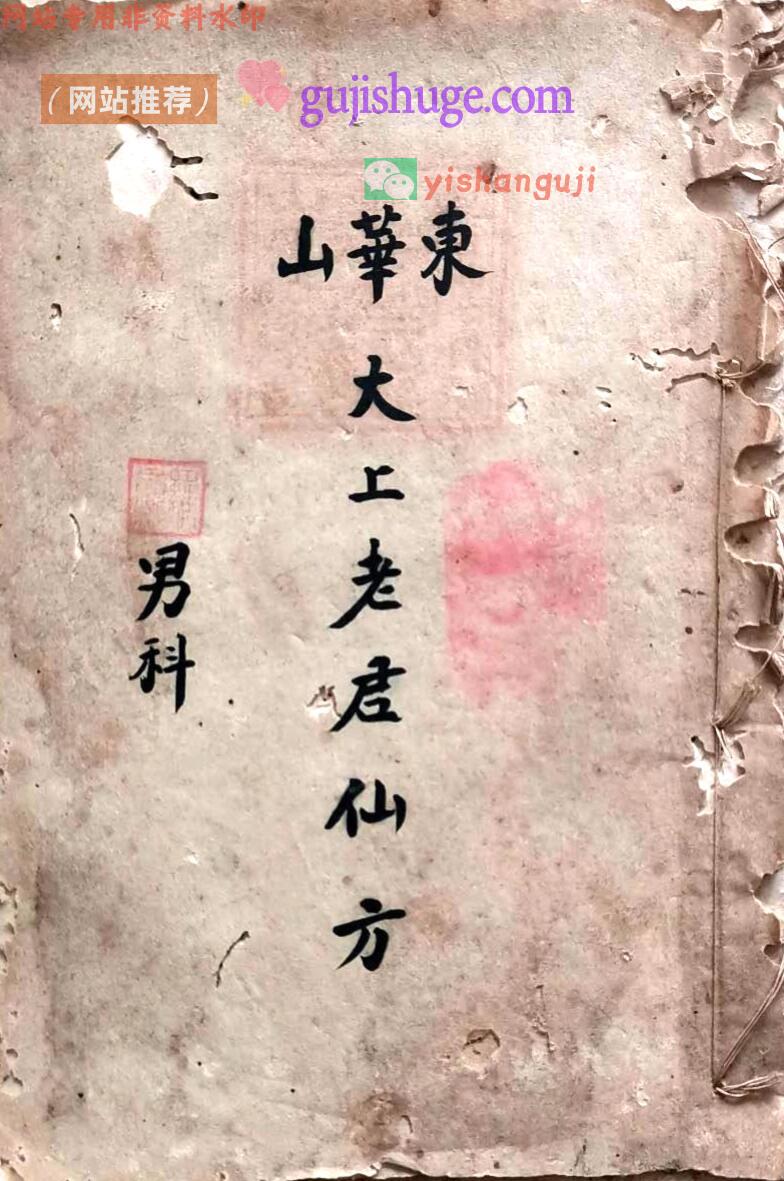 网站专用非资料水印
（网站推荐） gujishuge.com
yishanguji
東華山
大上老君仙方
男科